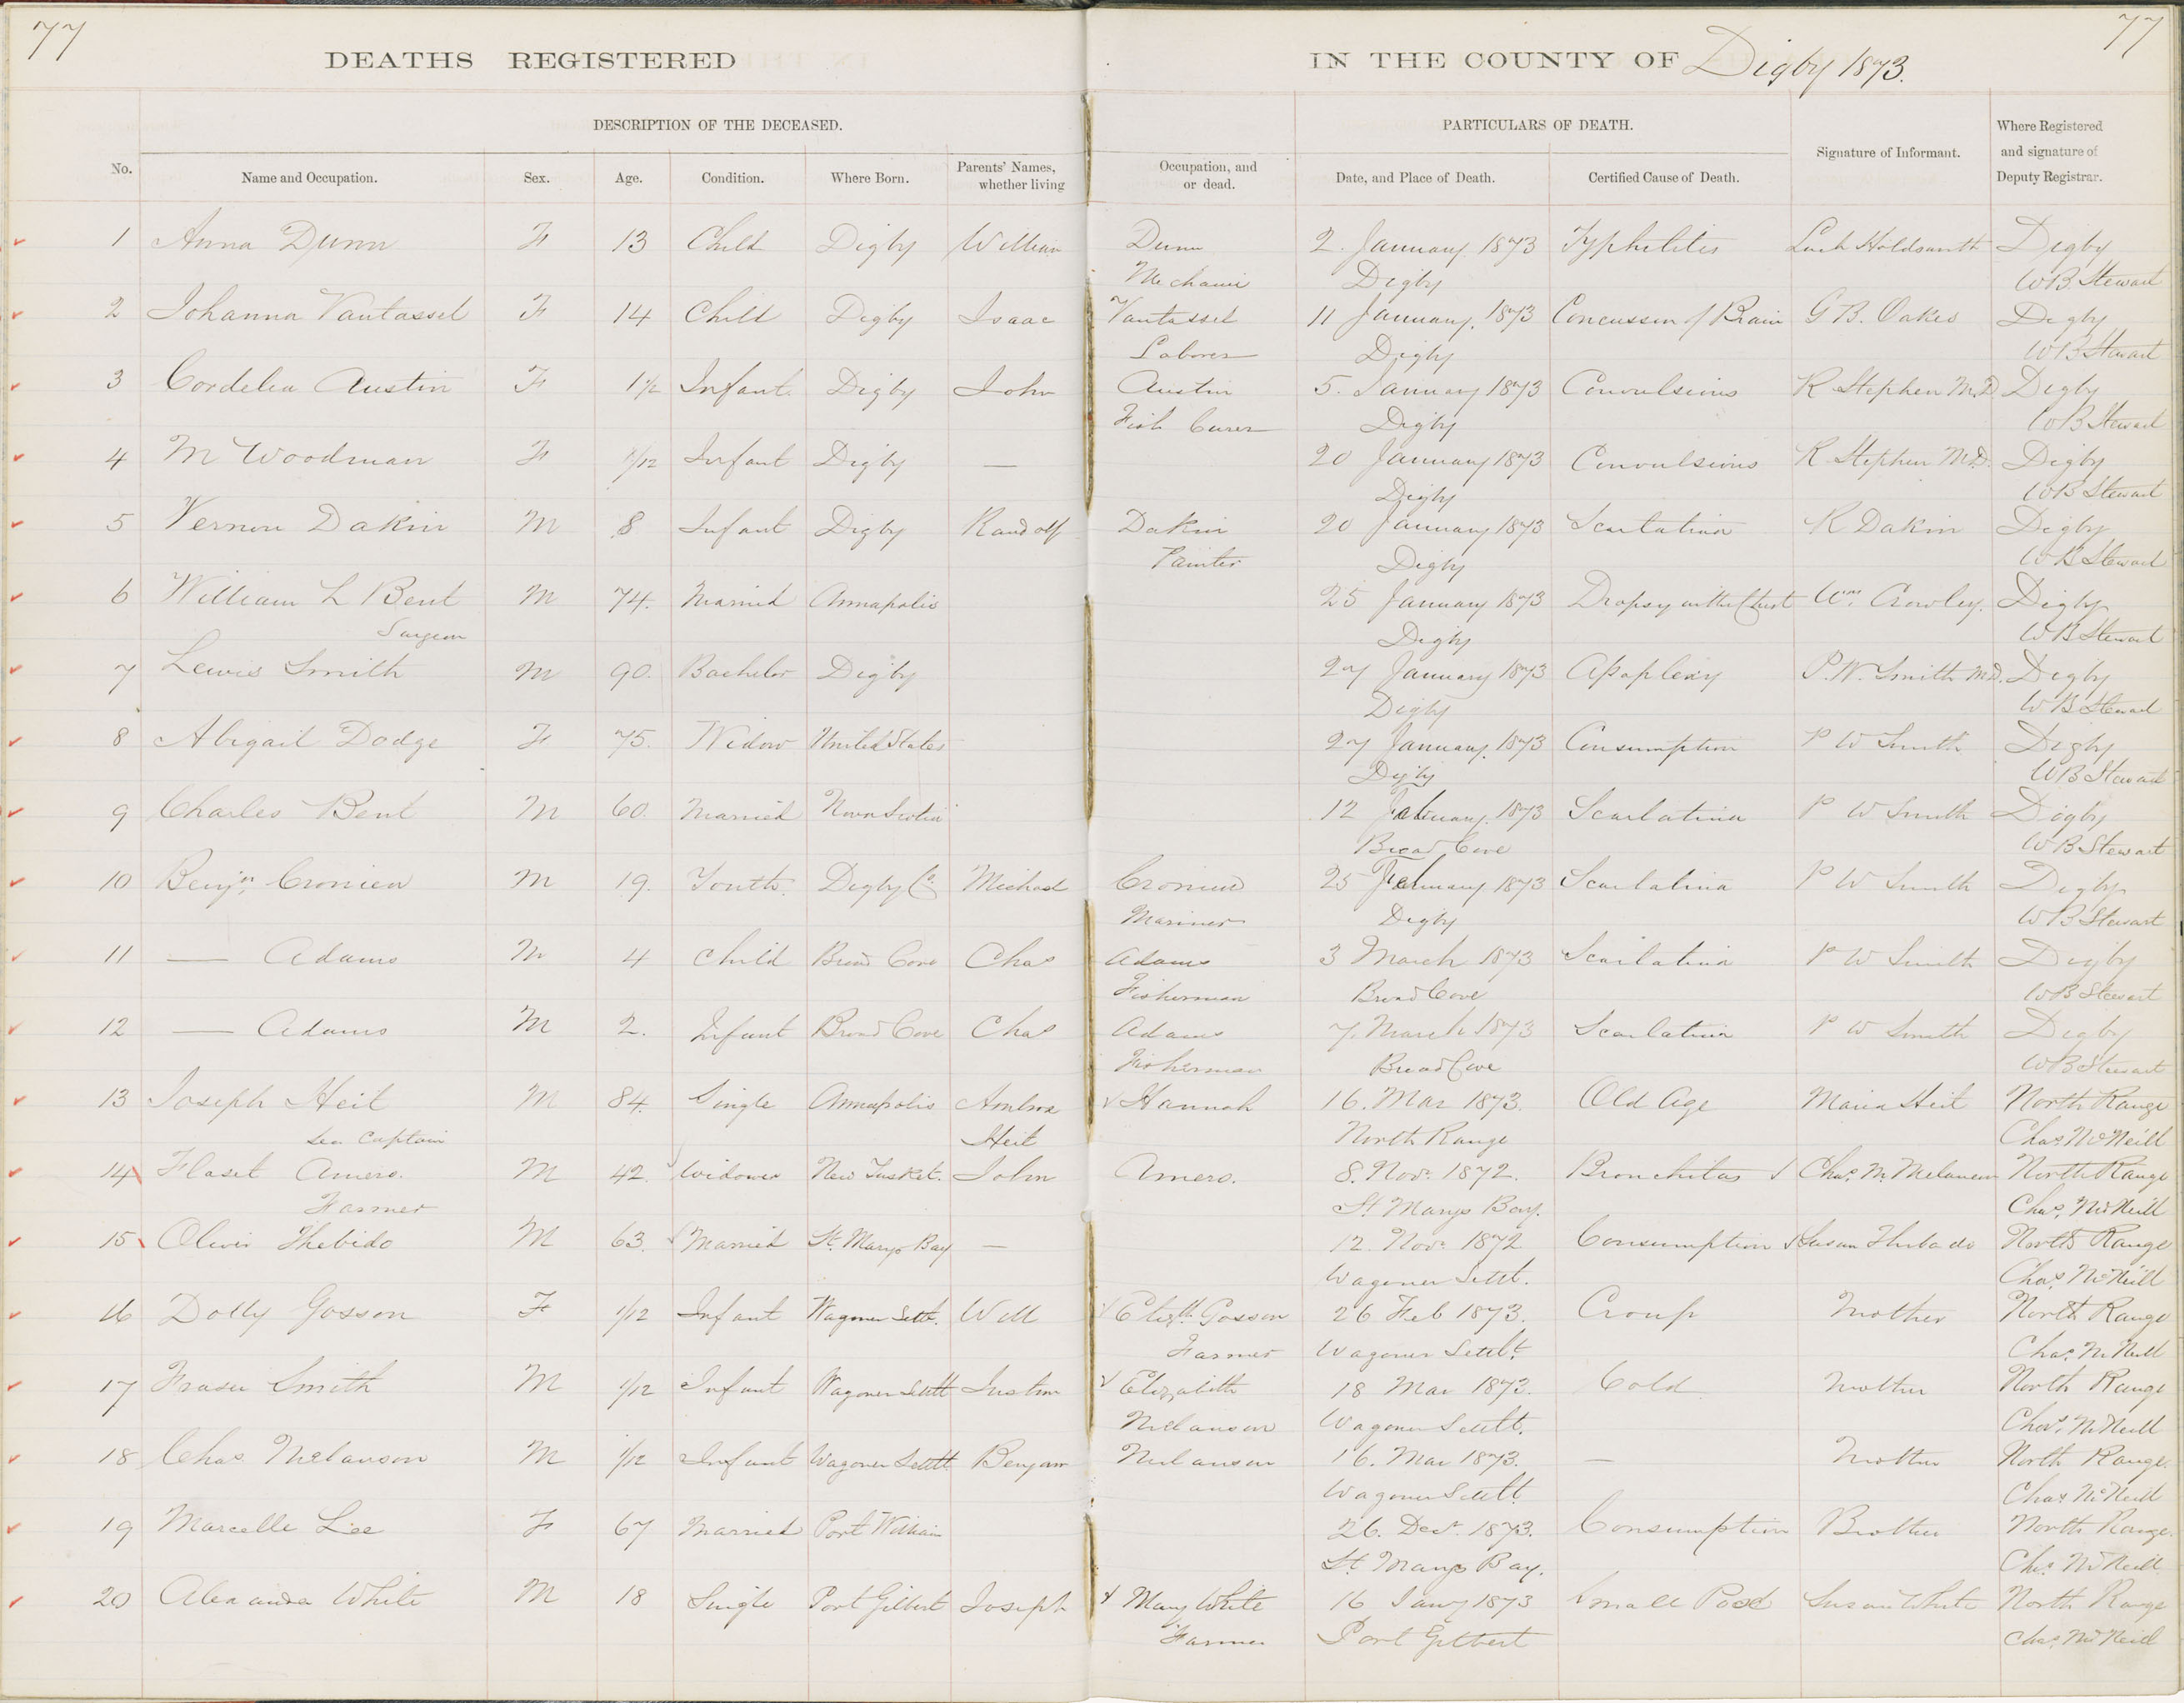 77
77
DEATHS REGISTERED IN THE COUNTY OF Digby 1873.
DESCRIPTION OF THE DECEASED. PARTICULARS OF DEATH.
No. Name and Occupation. Sex. Age. Condition. Where Born. Parents' Names, whether living Occupation, and or dead. Date, and Place of Death. Certified Cause of Death. Signature of Informant. Where Registered and signature of Deputy Registrar.
1 Anna Dunn F 13 Child Digby William Dunn 2. January 1873 Typhilitis Holdsworth Digby
Mechanic Digby WB Stewart
2 Johanna Vantassel F 14 Child Digby Isaac Vantassel 11 January, 1873 Concussion of Brain G B. Oakes Digby
Laborer Digby WB Stewart
3 Cordelia Austin F 1½ Infant. Digby John Austin 5. January 1873 Convulsions R Stephen M.D Digby
Fish Curer Digby WB Stewart
4 M Woodman F 1/12 Infant Digby — 20 January 1873 Convulsions R Stephen M.D. Digby
Digby WB Stewart
5 Vernon Dakin M 8 Infant Digby Randolf Dakin 20 January 1873 Scarlatina R Dakin Digby
Painter Digby WB Stewart
6 William L Bent M 74. Married Annapolis 25 January 1873 Dropsy in the Chest Wm. Crowley. Digby
Surgeon Digby WB Stewart
7 Lewis Smith M 90. Bachelor Digby 27 January 1873 Apoplexy P. W. Smith M.D. Digby
Digby WB Stewart
8 Abigail Dodge F 75. Widow United States 27 January, 1873 Consumption P W Smith Digby
Digby WB Stewart
9 Charles Bent M 60. Married Nova Scotia 12 February. 1873 Scarlatina P W Smith Digby
Broad Cove WB Stewart
10 Benjn. Cronien M 19. Youth. Digby Co. Michael Cronien 25 February 1873 Scarlatina P W Smith Digby
Mariner Digby WB Stewart
11 — Adams M 4 Child Broad Cove Chas Adams 3 March 1873 Scarlatina P W Smith Digby
Fisherman Broad Cove WB Stewart
12 — Adams M 2. Infant Broad Cove Chas Adams 7. March 1873 Scarlatina P W Smith Digby
Fisherman Broad Cove WB Stewart
13 Joseph Heit M 84. Single Annapolis Ambrose Hannah 16. Mar 1873. Old Age Maria Heit North Range
Sea Captain Heit North Range Chas McNeill
14 Amero. M 42. Widower New Tusket. John Amero. 8. Novr. 1872. Bronchitas Chas. M. Melanson North Range
Farmer St Marys Bay. Chas. McNeill
15 Oliver Thebido M 63. Married St. Marys Bay — 12. Novr. 1872 Consumption Susan Thibado North Range
Wagoner Settt. Chas. McNeill
16 Dolly Gosson F 1/12 Infant Wagoner Settt. Will Elizth Gosson 26 Feb 1873. Croup Mother North Range
Farmer Wagoner Settlt. Chas. McNeill
17 Fraser Smith M 1/12 Infant Wagoner Settlt Justin Elizabeth 18 Mar 1873. Cold Mother North Range
Melanson Wagoner Settlt. Chas. McNeill
18 Chas Melanson M 1/12 Infant Wagoner Settlt Benjam Melanson 16. Mar 1873. — Mother North Range.
Wagoner Settlt Chas McNeill
19 Marcelle Lee F 67 Married Port William 26. Decr. 1873. Consumption Brother North Range.
St. Marys Bay. Chs. McNeill
20 Alexander White M 18 Single Port Gilbert Joseph Mary White 16 Jany 1873 Small Pox Susan White North Range
Farmer Port Gilbert Chas. McNeill